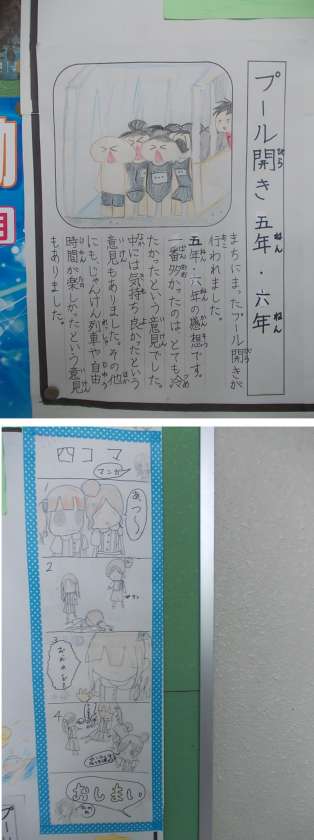 プール開き 五年・六年
まちにまったプール開きが
行われました。
五年・六年の感想です。
一番多かったのは、とても冷
たかったという意見でした。
中には気持ち良かったという
意見もありました。その他
にも、じゃんけん列車や自由
時間が楽しかったという意見
もありました。
四コマ
マンガ
1
あつ〜
2
3
4
おしまい